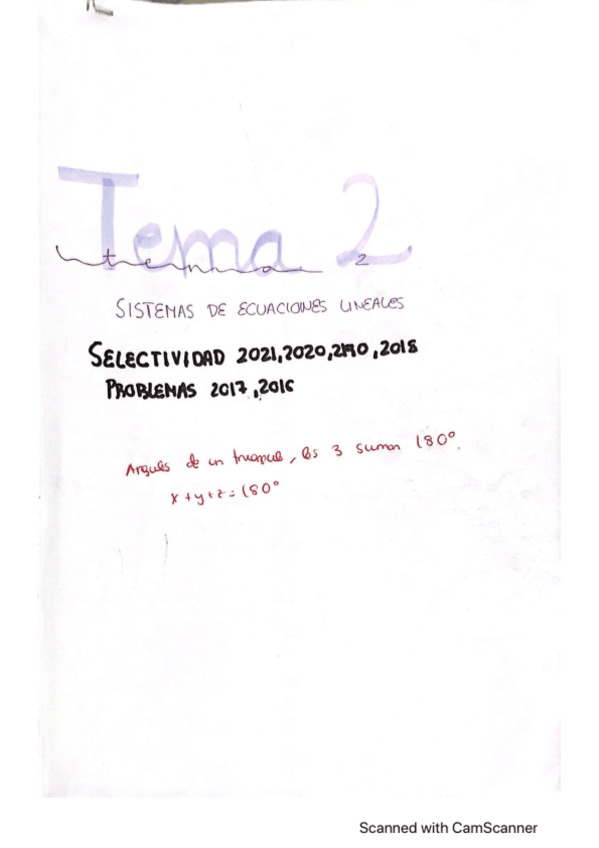 Tema 2
tema 2
SISTEMAS DE ECUACIONES LINEALES
SELECTIVIDAD 2021, 2020, 2018
PROBLEMAS 2017, 2016
Angulos de un triangulo, los 3 suman 180º.
x+y+z=180º
Scanned with CamScanner